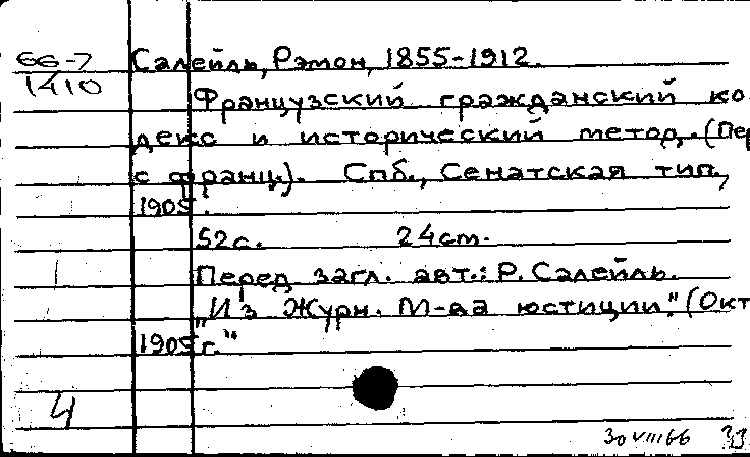 66-7
1410
Салейль, Рэмон, 1855-1912.
Французский гражданский ко
декс и исторический метод. (Пер
с франц.). Спб., Сенатская тип.,
1905.
52с. 24cm.
Перед загл. авт.: Р. Салейль.
„Из Журн. М-ва юстиции." (Окт
1905г."
4
30 VIII 66 33